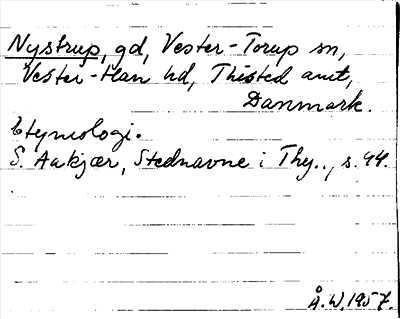 Nystrup, gd, Vester-Torup sn,
Vester-Han hd, Thisted amt,
Danmark.
Etymologi.
S. Aakjær, Stednavne i Thy.., s. 44.
Å.W. 1957.